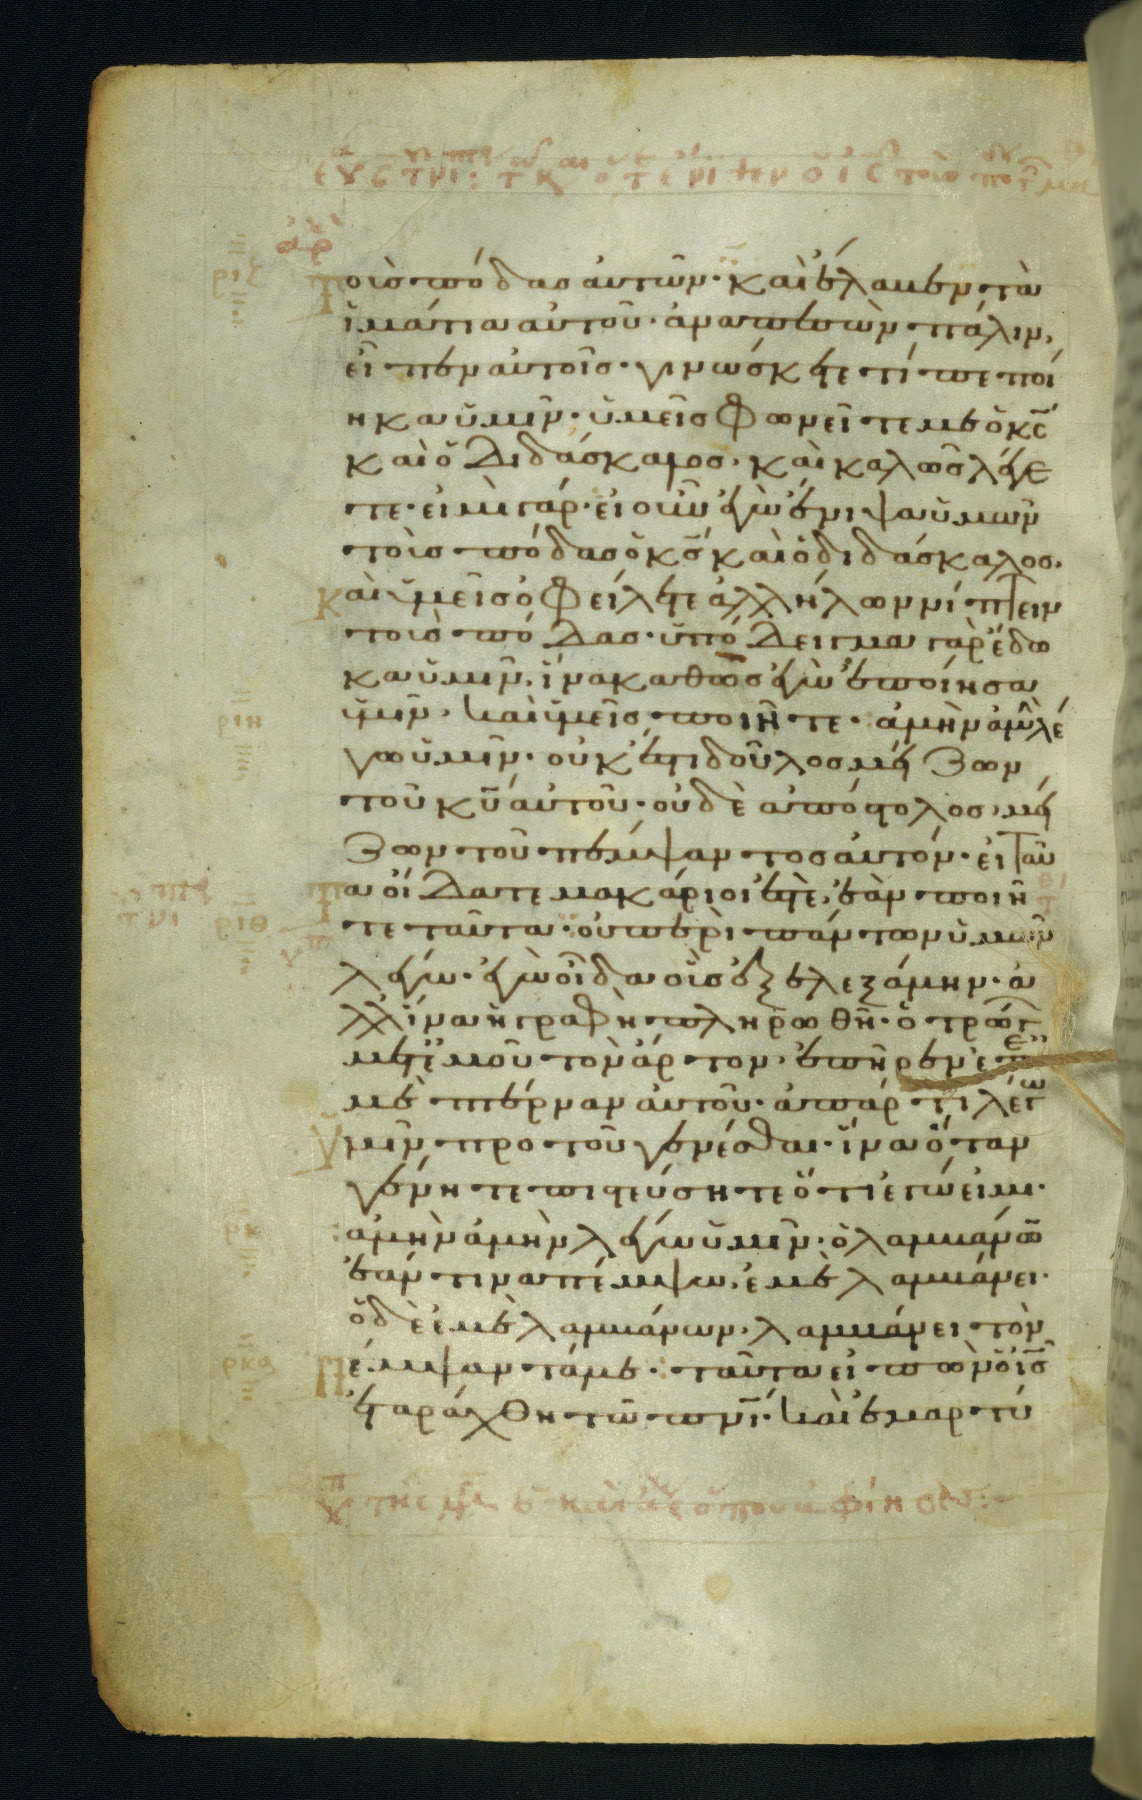 ἀρχ
ριζ
Τοὺς πόδας αὐτῶν· καὶ ἔλαβεν τὰ
ἱμάτια αὐτοῦ· ἀναπεσὼν πάλιν,
εἶπεν αὐτοῖς· γινώσκετε τί πεποί
ηκα ὑμῖν· ὑμεῖς φωνεῖτε με ὁ κ̅ς̅
καὶ ὁ διδάσκαλος· καὶ καλῶς λέγε
τε· εἰμὶ γάρ· εἰ οὖν ἐγὼ ἔνιψα ὑμῶν
τοὺς πόδας ὁ κ̅ς̅ καὶ ὁ διδάσκαλος.
Καὶ ὑμεῖς ὀφείλετε ἀλλήλων νίπτειν
τοὺς πόδας· ὑπόδειγμα γὰρ ἔδω
κα ὑμῖν, ἵνα καθὼς ἐγὼ ἐποίησα
ριη
ὑμῖν· καὶ ὑμεῖς ποιῆτε· ἀμὴν ἀμὴν λέ
γω ὑμῖν· οὐκ ἔστι δοῦλος μεί ζων
τοῦ κ̅υ̅ αὐτοῦ· οὐδὲ ἀπόστολος μεί
ζων τοῦ πέμψαντος αὐτόν· εἰ ταῦ
ριθ
τα οἴδατε μακάριοι ἐστὲ, ἐὰν ποιῆ
τε ταῦτα· οὐ περὶ πάντων ὑμῶν
λέγω· ἐγὼ οἶδα οὓς ἐξελεξάμην· ἀ
λλ' ἵνα ἡ γραφὴ πληρωθῆ· ὁ τρώγ
μετ' ἐμοῦ τὸν ἄρτον· ἐπῆρεν ἐπ' ἐ
μὲ πτέρναν αὐτοῦ· ἀπάρτι λέγω
ὑμῖν πρὸ τοῦ γενέσθαι· ἵνα ὅταν
γένηται πιστεύσητε ὅτι ἐγώ εἰμι·
ρκ
ἀμὴν ἀμὴν λέγω ὑμῖν· ὁ λαμβάνων
ἐάν τινα πέμψω, ἐμὲ λαμβάνει·
ὁ δὲ ἐμὲ λαμβάνων, λαμβάνει τὸν
ρκα
Πέμψαντά με· ταῦτα εἰπὼν ὁ ι̅ς̅
ἐταράχθη τῶ π̅ν̅ι̅· καὶ ἐμαρτύ